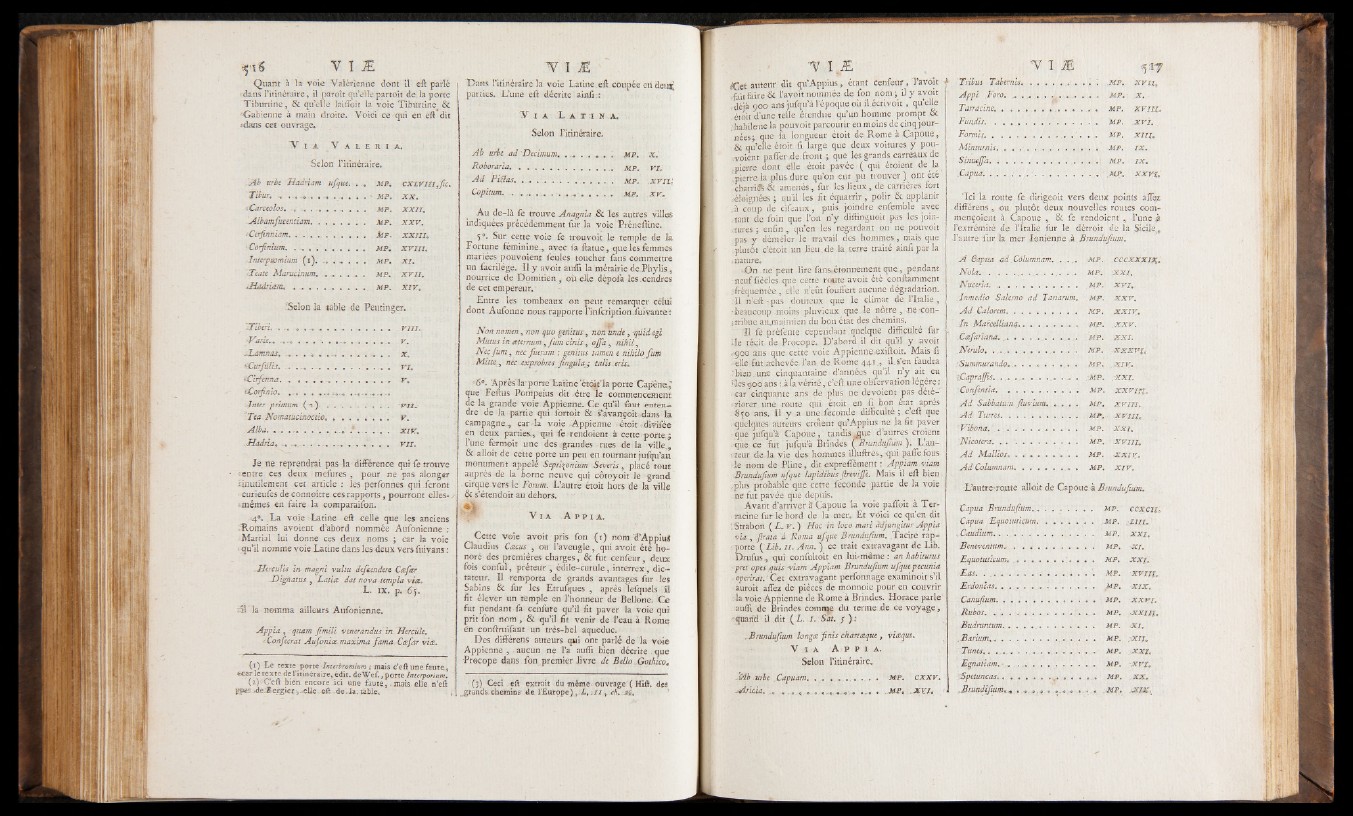 516 V I Æ
Quant à la voie Valérienne dont il est parlé
dans l'itinéraire, il paroît qu'elle partoit de la porte
Tiburtine, & qu'elle laissoit la voie Tiburtine &
Gabienne à main droite. Voici ce qui en est dit
dans cet ouvrage.
V I A V A L E R I A.
Selon l'itinéraire.
Ab urbe Hadriam usque. . . MP. CXLVIII, sic.
Tibur. . . . . . . . . . . MP. XX.
Carceolos. . . . . . . . . MP. XXII.
Albamfucentiam. . . . . . . MP. XXV.
Cerfinniam. . . . . . . . . MP. XXIII.
Corfinium. . . . . . . . . MP. XVIII.
Interpromium (1). . . . . . . MP. XI.
Teate Marucinum. . . . . . . MP. XVII.
Hadriam. . . . . . . . . . MP. XIV.
Selon la table de Peutinger.
Tiberi. . . . . . . . . . . VIII.
Varie. . . . . . . . . . . V.
Lamnas. . . . . . . . . . . X.
Carsulis. . . . . . . . . . VI.
Cirfenna. . . . . . . . . . V.
Corfinio. . . . . . . . . .
Inter primum (2) . . . . . . VII.
Tea Nomarucinoctio. . . . . . V.
Alba. . . . . . . . . . . . XIV.
Hadria. . . . . . . . . . . VII.
Je ne reprendrai pas la différence qui se trouve
entre ces deux mesures, pour ne pas alonger
inutilement cet article : les personnes qui seront
curieuses de connoître ces rapports, pourront elles-
mêmes en faire la comparaison.
4°. La voie Latine est celle que les anciens
Romains avoient d'abord nommée Ausonienne :
Martial lui donne ces deux noms ; car la voie
qu'il nomme voie Latine dans les deux vers suivans :
Herculis in magni vultu descendere Cæsar
Dignatus, Latiæ dat nova templa viæ.
L. IX. p. 65.
Il la nomma ailleurs Ausonienne.
Appia, quam simili venerandus in Hercule
Consecrat Ausoniæ maxima fama Cæsar viæ.
(1) Le texte porte Interbromium ; mais c'est une faute,
car le texte de l'itinéraire, edit. de Wes., porte Interpomium.
(2) C'est bien encore ici une faute, mais elle n'est
pas de Bergier, elle est de la table.
V I Æ
Dans l'itinéraire la voie Latine est coupée en deux
parties. L'une est décrite ainsi :
V I A L A T I N A.
Selon l'itinéraire.
Ab urbe ad Decimum. . . . . . MP. X.
Roboraria. . . . . . . . . . MP. VI.
Ad Pictas. . . . . . . . . . MP. XVII.
Copitum. . . . . . . . . . . MP. XV.
Au de-là se trouve Anagnia & les autres villes
indiquées précédemment sur la voie Prénestine.
5°. Sur cette voie se trouvoit le temple de la
Fortune féminine, avec sa statue, que les femmes
mariées pouvoient seules toucher sans commettre
un sacrilège. Il y avoit aussi la métairie de Phylis,
nourrice de Domitien, où elle déposa les cendres
de cet empereur.
Entre les tombeaux on peut remarquer celui
dont Ausone nous rapporte l'inscription suivante :
Non nomen, non quo genitus, non unde, quid egi
Mutus in æternum, sum cinis, ossa, nihil,
Nec sum, nec fueram : genitus tamen e nihilo sum
Mitte, nec exprobres singula ; talis eris.
6°. Après la porte Latine étoit la porte Capène,
que Festus Pompeius dit être le commencement
de la grande voie Appienne. Ce qu'il faut enten-
dre de la partie qui sortoit & s'avançoit dans la
campagne, car la voie Appienne étoit divisée
en deux parties, qui se rendoient à cette porte ;
l'une fermoit une des grandes rues de la ville,
& alloit de cette porte un peu en tournant jusqu'au
monument appelé Septizonium Severis, placé tout
auprès de la borne neuve qui côtoyoit le grand
cirque vers le Forum. L'autre étoit hors de la ville
& s'étendoit au dehors.
V I A A P P I A.
Cette voie avoit pris son (1) nom d'Appius
Claudius Cæcus, ou l'aveugle, qui avoit été ho-
noré des premières charges, & fut censeur, deux
fois consul, préteur, édile-curule, interrex, dic-
tateur. Il remporta de grands avantages sur les
Sabins & sur les Etrusques, après lesquels il
fit élever un temple en l'honneur de Bellone. Ce
fut pendant sa censure qu'il fit paver la voie qui
prit son nom, & qu'il fit venir de l'eau à Rome
en construisant un très-bel aqueduc.
Des différens auteurs qui ont parlé de la voie
Appienne, aucun ne l'a aussi bien décrite que
Procope dans son premier livre de Bello Gothico.
(3) Ceci est extrait du même ouvrage (Hist. des
grands chemins de l'Europe), L. II, ch. 26.
V I Æ
Cet auteur dit qu'Appius, étant censeur, l'avoit
fait faire & l'avoit nommée de son nom ; il y avoit
déjà 900 ans jusqu'à l'époque où il écrivoit, qu'elle
étoit d'une telle étendue qu'un homme prompt &
habile ne la pouvoit parcourir en moins de cinq jour-
nées ; que la longueur étoit de Rome à Capoue,
& qu'elle étoit si large que deux voitures y pou-
voient passer de front ; que les grands carreaux de
pierre dont elle étoit pavée (qui étoient de la
pierre la plus dure qu'on eut pu trouver) ont été
charriés & amenés, sur les lieux, de carrières fort
éloignées ; qu'il les fit équarrir, polir & applanir
à coup de ciseaux, puis joindre ensemble avec
tant de soin que l'on n'y distinguoit pas les join-
tures ; enfin, qu'en les regardant on ne pouvoit
pas y démêler le travail des hommes, mais que
plutôt c'étoit un lieu de la terre traité ainsi par la
nature.
On ne peut lire sans étonnement que, pendant
neuf siècles que cette route avoit été constamment
fréquentée, elle n'eût souffert aucune dégradation.
Il n'est pas douteux que le climat de l'Italie,
beaucoup moins pluvieux que le nôtre, ne con-
tribue au maintien du bon état des chemins.
Il se présente cependant quelque difficulté sur
le récit de Procope. D'abord il dit qu'il y avoit
900 ans que cette voie Appienne existoit. Mais si
elle fut achevée l'an de Rome 441, il s'en faudra
bien une cinquantaine d'années qu'il n'y ait eu
les 900 ans : à la vérité, c'est une observation légère :
car cinquante ans de plus ne devoient pas dété-
riorer une route qui étoit en si bon état après
850 ans. Il y a une seconde difficulté ; c'est que
quelques auteurs croient qu'Appius ne la fit paver
que jusqu'à Capoue, tandis que d'autres croient
que ce fut jusqu'à Brindes (Brundusium). L'au-
teur de la vie des hommes illustres, qui passe sous
le nom de Pline, dit expressément : Appiam viam
Brundusium usque lapidibus stravisse. Mais il est bien
plus probable que cette seconde partie de la voie
ne fut pavée que depuis.
Avant d'arriver à Capoue la voie passoit à Ter-
racine sur le bord de la mer. Et voici ce qu'en dit
Strabon (L. V.) Hoc in loco mari adjungitur Appia
via, strata à Roma usque Brundusium. Tacite rap-
porte (Lib. II. Ann.) ce trait extravagant de Lib.
Drusus, qui consultoit en lui-même : an habiturus
foret opes queis viam Appiam Brundusium usque pecunia
operiret. Cet extravagant personnage examinoit s'il
auroit assez de pièces de monnoie pour en couvrir
la voie Appienne de Rome à Brindes. Horace parle
aussi de Brindes comme du terme de ce voyage,
quand il dit (L. I. Sat. 5) :
Brundusium longæ finis chartæque, viæque.
V I A A P P I A.
Selon l'itinéraire.
Ab urbe Capuam. . . . . . . . MP. CXXV.
Aricia. . . . . . . . . . . MP. XVI.
V I Æ 517
Tribus Tabernis. . . . . . . . MP. XVII.
Appi Foro. . . . . . . . . . MP. X.
Tarracine. . . . . . . . . . MP. XVIII.
Fundis. . . . . . . . . . . MP. XVI.
Formis. . . . . . . . . . . MP. XIII.
Minturnis. . . . . . . . . . MP. IX.
Sinuessa. . . . . . . . . . MP. IX.
Capua. . . . . . . . . . . . MP. XXVI.
Ici la route se dirigeoit vers deux points assez
différens, ou plutôt deux nouvelles routes com-
mençoient à Capoue, & se rendoient, l'une à
l'extrémité de l'Italie sur le détroit de la Sicile,
l'autre sur la mer Ionienne à Brundusium.
A Capua ad Columnam. . . . MP. CCCXXXIX.
Nola. . . . . . . . . . . . MP. XXI.
Nuceria. . . . . . . . . . . MP. XVI.
Inmedio Salerno ad Tanarum. MP. XXV.
Ad Calorem. . . . . . . . . MP. XXIV.
In Marcelliana. . . . . . . . MP. XXV.
Cæsariana. . . . . . . . . . MP. XXI.
Nerulo. . . . . . . . . . . MP. XXXVI.
Summurando. . . . . . . . . MP. XIV.
Caprassis. . . . . . . . . . MP. XXI.
Consentia. . . . . . . . . . MP. XXVIII.
Ad Sabbatum fluvium. . . . . MP. XVIII.
Ad Turres. . . . . . . . . . MP. XVIII.
Vibona. . . . . . . . . . . MP. XXI.
Nicotera. . . . . . . . . . MP. XVIII.
Ad Mallios. . . . . . . . . MP. XXIV.
Ad Columnam. . . . . . . . . MP. XIV.
L'autre route alloit de Capoue à Brundusium.
Capua Brundusium. . . . . . . MP. CCXCII.
Capua Equotuticum. . . . . . MP. LIII.
Caudium. . . . . . . . . . . MP. XXI.
Beneventum. . . . . . . . . MP. XI.
Equotuticum. . . . . . . . . MP. XXI.
Eas. . . . . . . . . . . . . MP. XVIII.
Erdonias. . . . . . . . . . MP. XIX.
Canusium. . . . . . . . . . MP. XXVI.
Rubos. . . . . . . . . . . . MP. XXIII.
Budruntum. . . . . . . . . . MP. XI.
Barium. . . . . . . . . . . MP. XII.
Tures. . . . . . . . . . . . MP. XXI.
Egnatiam. . . . . . . . . . MP. XVI.
Speluncas. . . . . . . . . . MP. XX.
Brundisium. . . . . . . . . MP. XIX.